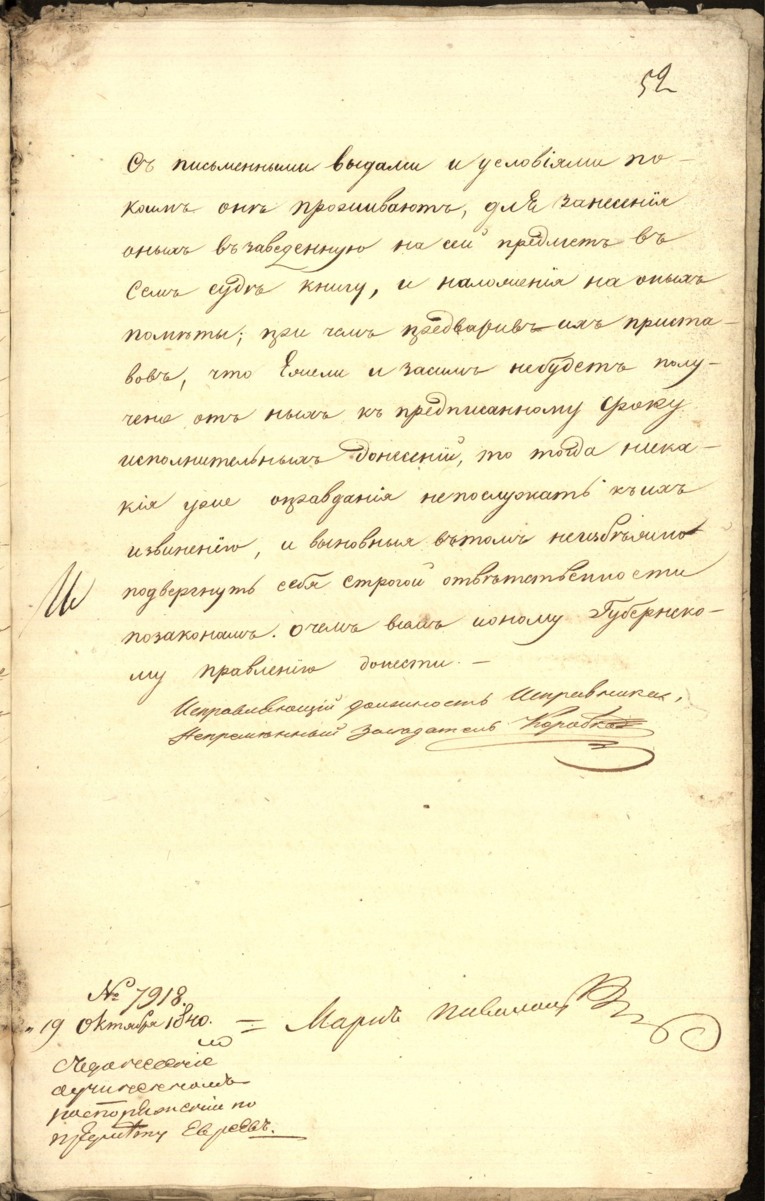 52
Съ письменными выдами и условіями по-
коимъ онѣ проживаютъ, для занесенія
оныхъ въ заведенную на сей предметъ въ
Семъ судѣ книгу, и наложенія на оныхъ
помѣты; при чемъ предваривъ ихъ приста-
вовъ, что Ежели и засимъ небудетъ полу-
чено отъ ныхъ къ предписанному Сроку
исполнительныхъ донесеній, то тогда ника-
кія уже оправданія непослужатъ къ ихъ
извиненію, и выновныя вътомъ неизбѣжно
подвергнутъ себя строгой отвѣтственности
позаконамъ. Очемъ сему Губернско-
му правленію донести. —
Исправляющій должность Исправника,
Непремѣнный Засѣдатель
№ 7918.
19 Октября 1840.
распоряженіи по
предмѣту Евреевъ.